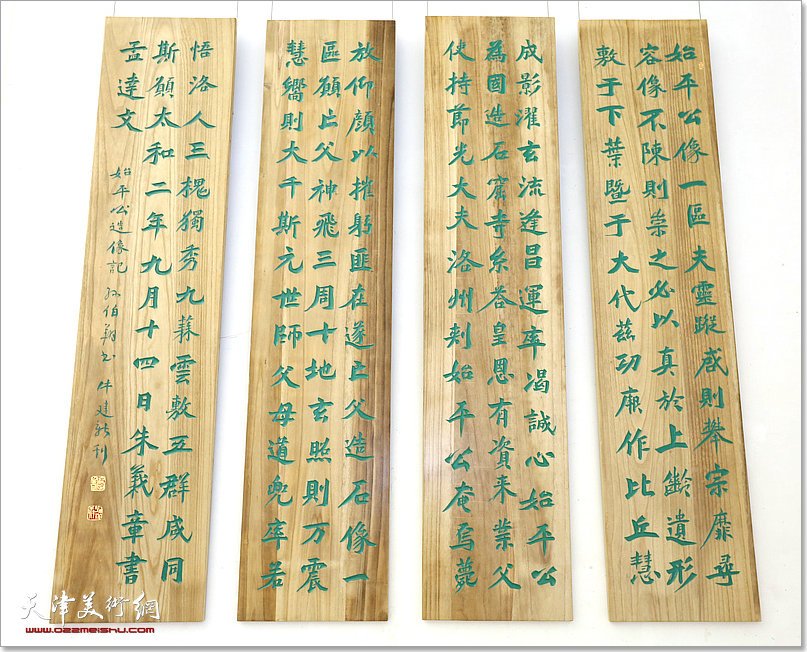 始平公像一區夫靈蹤感則攀宗靡尋
容像不陳則崇之必以真於上齡遺形
敷于下葉暨于大代茲功厥作比丘慧
成影濯玄流逢昌運率渴誠心始平公
為國造石窟寺糸荅皇恩有資来業父
使持節光大夫洛州刾始平公奄焉薨
放仰顏以摧躬匪在遂亡父造石像一
區願亡父神飛三周十地玄照則万震
慧嚮則大千斯元世師父母道兜率若
悟洛人三槐獨秀九蕀雲敷五群咸同
斯願太和二年九月十四日朱義章書
孟達文
始平公造像記 孙伯翔书 牛建刊
天津美術網
www.022meishu.com